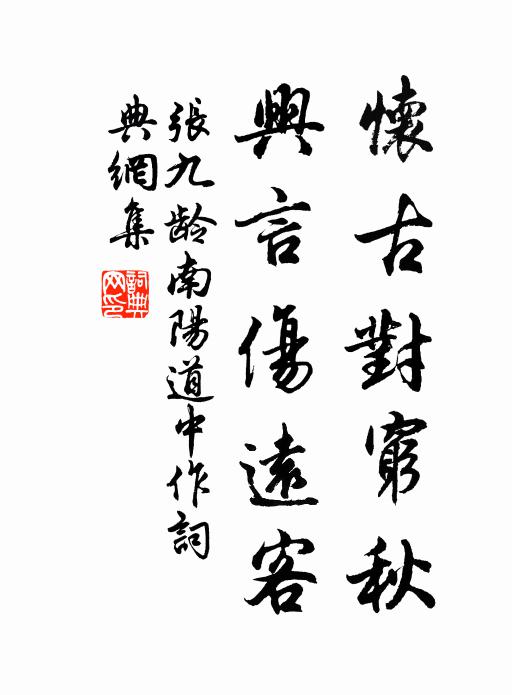 懷古對窮秋
興言傷遠客
張九龄南陽道中作詞
典網集
詞典
网印